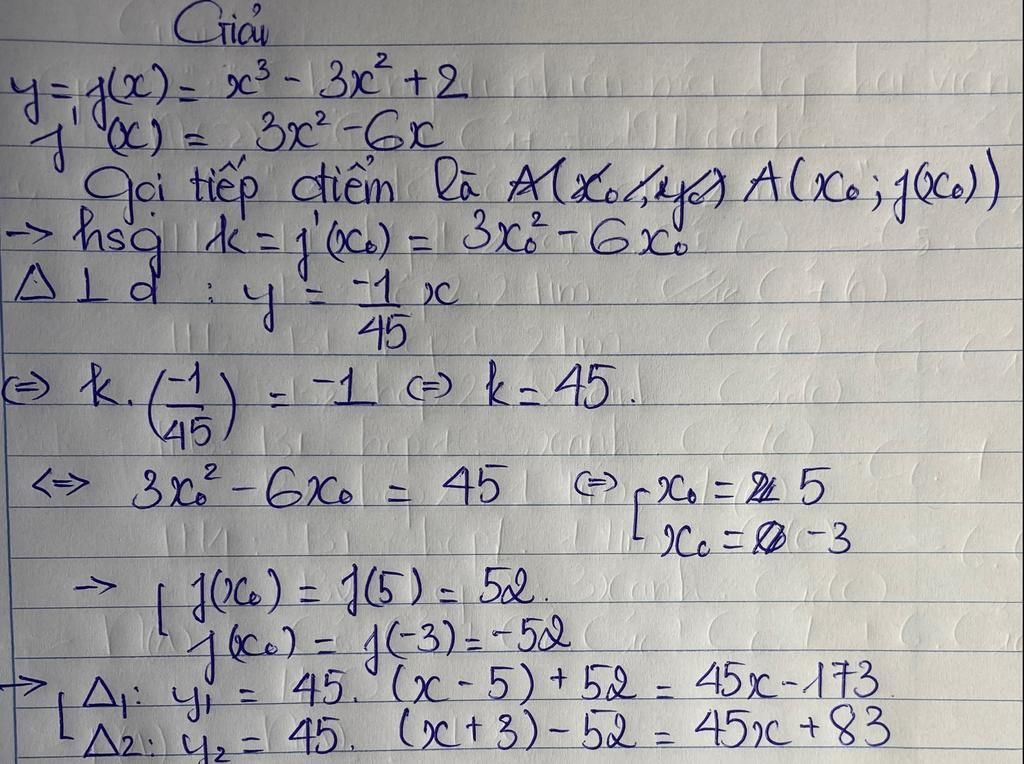 Giải
y = f(x) = x³ - 3x² + 2
f'(x) = 3x² - 6x
Gọi tiếp điểm là A(x₀; f(x₀))
→ hsg k = f'(x₀) = 3x₀² - 6x₀
Δ ⊥ d : y = -1/45 x
⇔ k. (-1/45) = -1 ⇔ k = 45.
⇔ 3x₀² - 6x₀ = 45 ⇔ [ x₀ = 5
x₀ = -3
→ [ f(x₀) = f(5) = 52.
f(x₀) = f(-3) = -52
→ [ Δ₁: y₁ = 45. (x - 5) + 52 = 45x - 173
Δ2: y₂ = 45. (x + 3) - 52 = 45x + 83